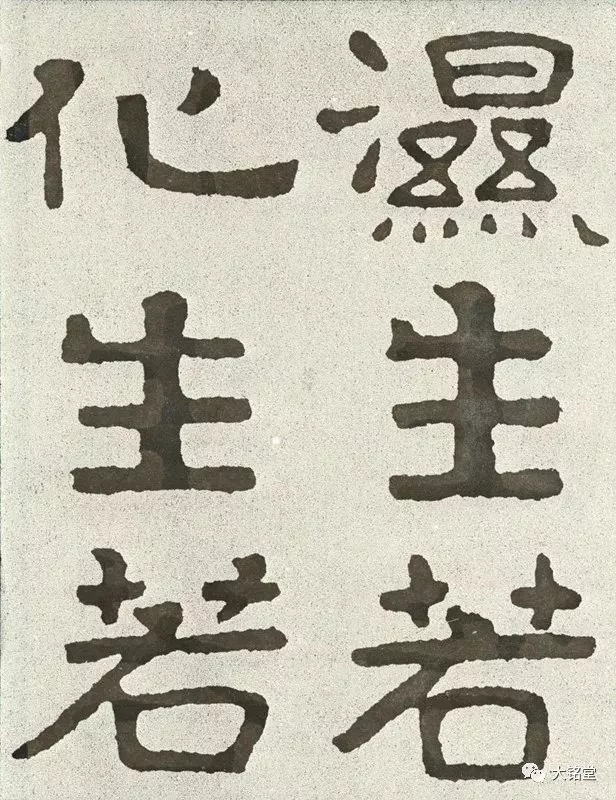 濕生若
化生若
大铭堂